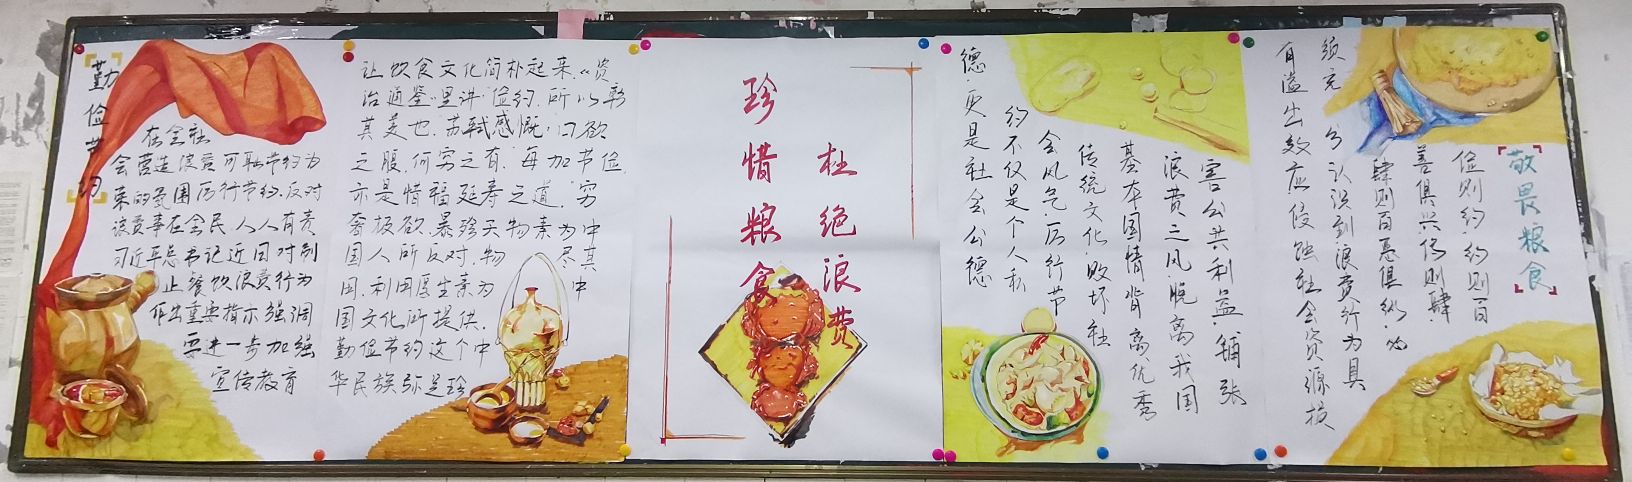 勤俭节约
在全社
会营造浪费可耻节约为
荣的氛围厉行节约.反对
浪费事在全民人人有责
习近平总书记近日对制
止餐饮浪费行为
作出重要指示强调
要进一步加强
宣传教育
让饮食文化简朴起来.《资
治通鉴》里讲"俭约.所以彰
其美也.苏轼感慨:"口欲
之腹,何穷之有.每加节俭
亦是惜福延寿之道.穷
奢极欲.暴殄天物素为中
国人所反对.物尽其
用.利用厚生素为中
国文化所提供.
勤俭节约这个中
华民族弥足珍
珍惜粮食
杜绝浪费
敬畏粮食
俭则约.约则百
善俱兴侈则肆
肆则百恶俱纵.必
须充分认识到浪费行为具
有溢出效应侵蚀社会资源损
害公共利益.铺张
浪费之风.脱离我国
基本国情背离优秀
传统文化.败坏社
会风气.厉行节
约不仅是个人私
德.更是社会公德